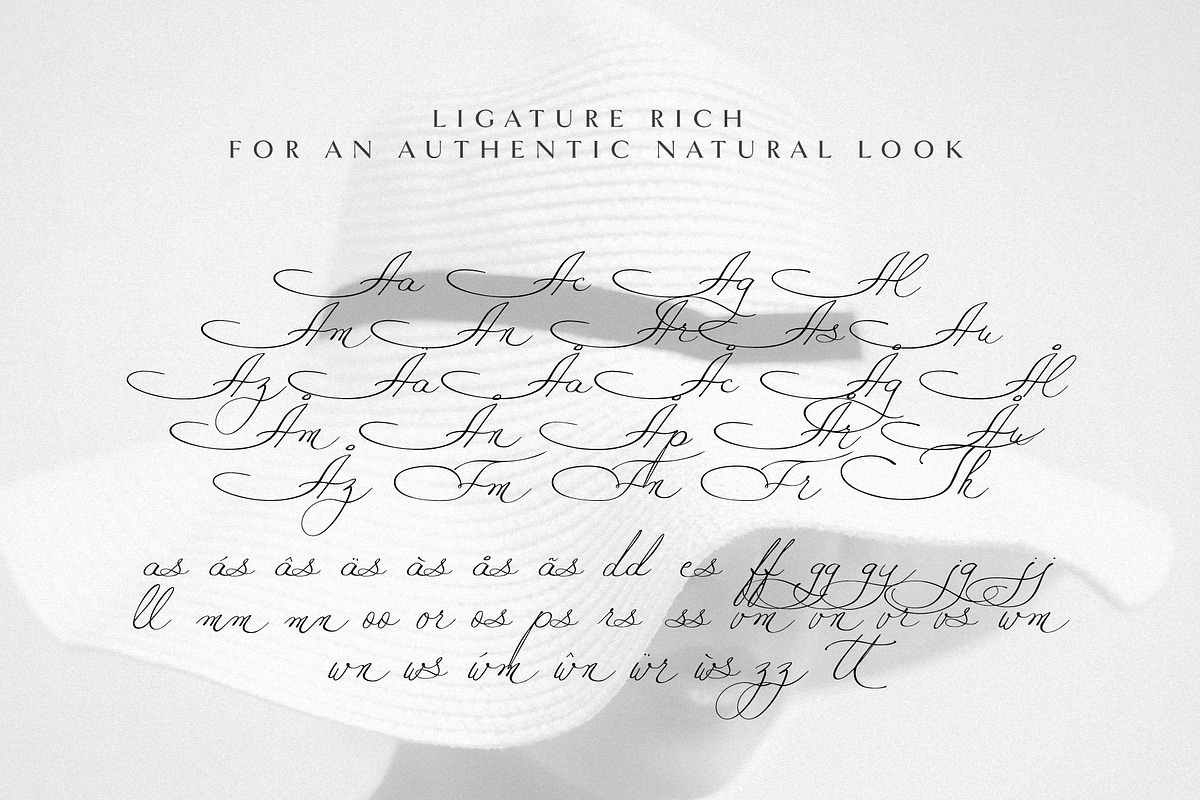 LIGATURE RICH
FOR AN AUTHENTIC NATURAL LOOK
Aa Ac Ag Al
Am An Ar As Au
Az Äa Åa Åc Åg Ål
Åm Ån Åp År Åu
Åz Fm Fn Fr Th
as ás âs äs às ås ãs dd es ff gg gy jg jj
ll mm mn oo or os ps rs ss vm vn vr vs wm
wn ws ẃm ŵn ẅr ẁs zz tt